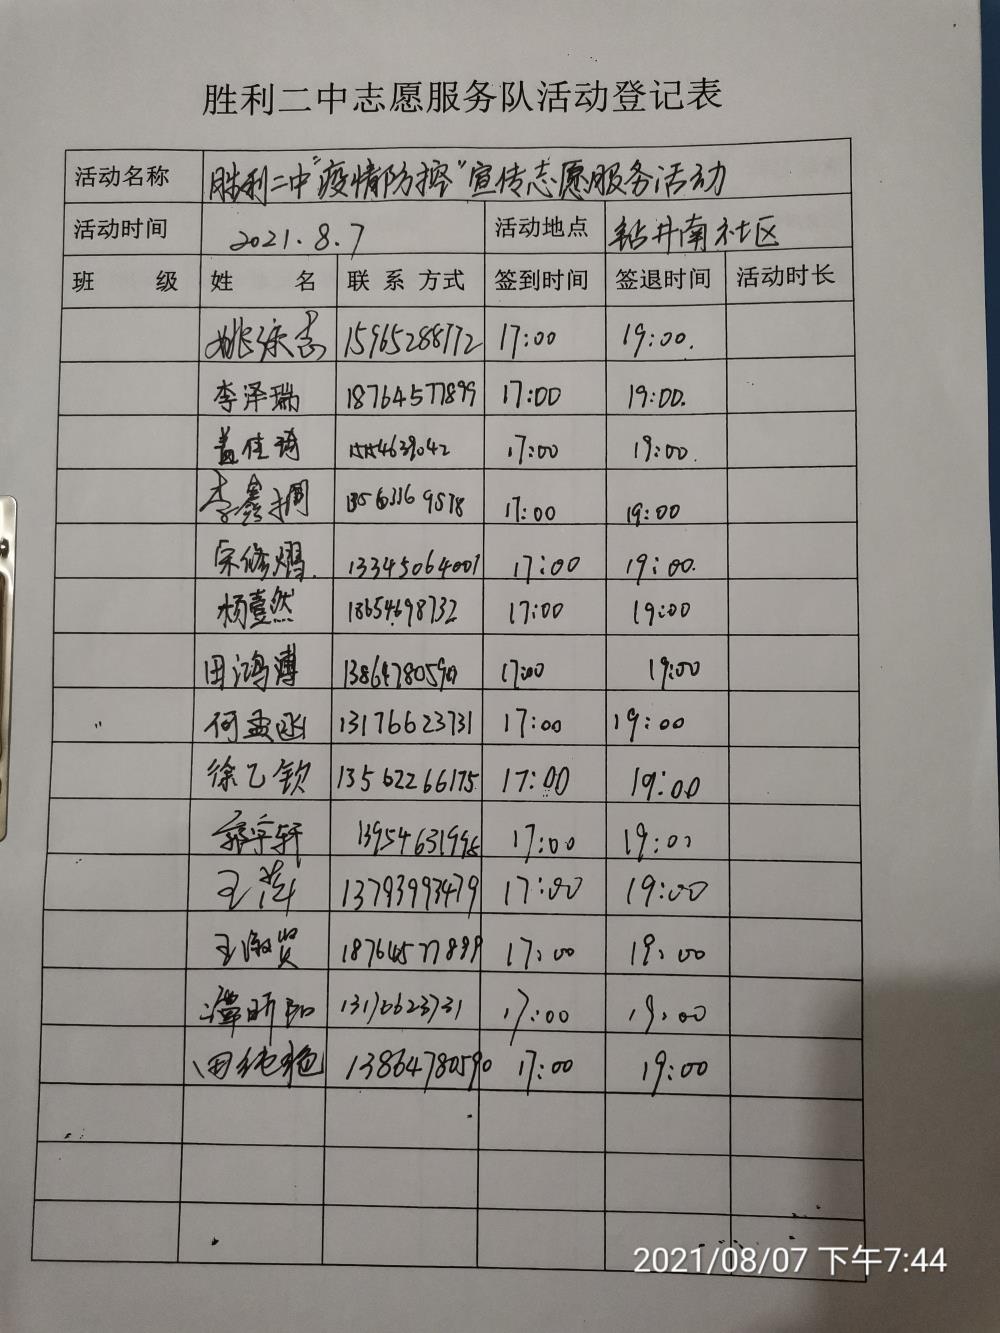 胜利二中志愿服务队活动登记表
活动名称 胜利二中"疫情防控"宣传志愿服务活动
活动时间 2021.8.7 活动地点 钻井南社区
班 级 姓 名 联 系 方式 签到时间 签退时间 活动时长
15965288772 17:00 19:00.
李泽瑞 18764577899 17:00 19:00.
盖佳琦 17:00 19:00.
李鑫 17:00 19:00
宋修熠. 13345064001 17:00 19:00.
杨壹然 18654698732 17:00 19:00
田鸿溥 13864780590 17:00 19:00
何孟函 13176623731 17:00 19:00
徐乙钦 13562266175 17:00 19:00
郭宇轩 17:00 19:00
王萍 13793993479 17:00 19:00
王淑贤 18764577899 17:00 19:00
13176623731 17:00 19:00
田纯艳 13864780590 17:00 19:00
2021/08/07 下午7:44